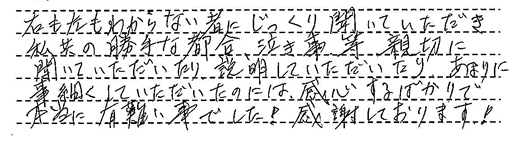 右も左もわからない者にじっくり聞いていただき
私共の勝手な都合、泣き事等、親切に
聞いていただいたり、説明していただいたり、あまりに
事細くしていただいたのには、感心するばかりで
本当に有難い事でした！感謝しております！